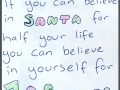 If you can believe
in SANTA for
half your life
you can believe
in yourself for